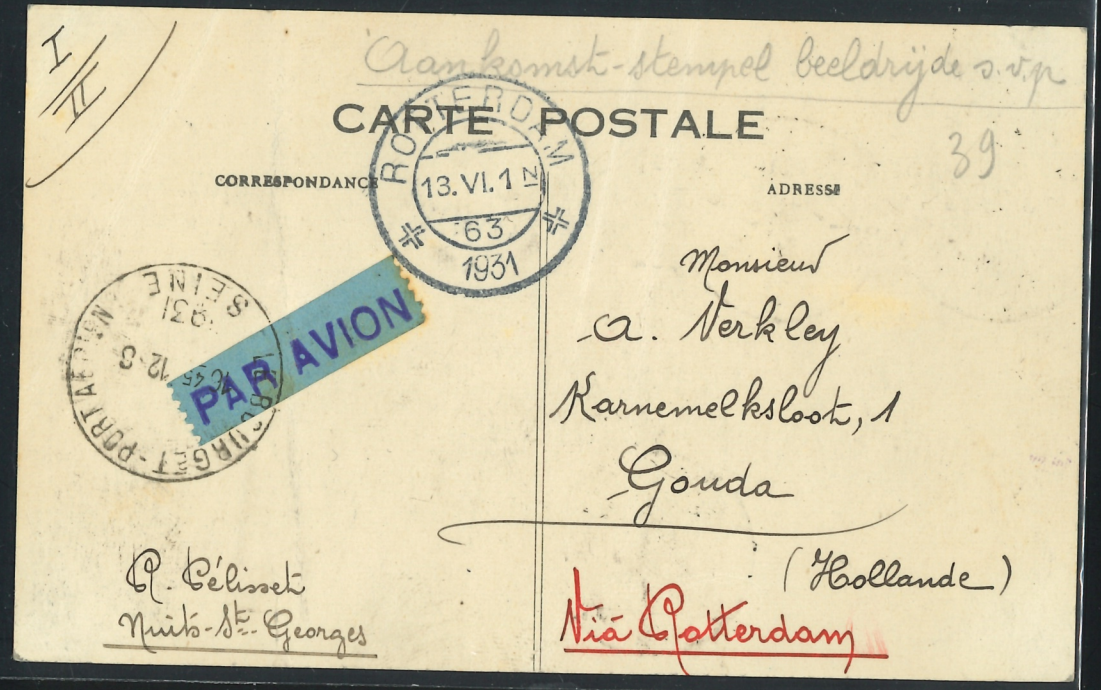 I
II
Aankomst-stempel beeldzijde s.v.p
CARTE POSTALE
39
CORRESPONDANCE
ADRESSE
ROTTERDAM
13.VI.1 N
63
1931
LE BOURGET-PORT AERIEN
SEINE
12-8
1931
PAR AVION
Monsieur
A. Verkley
Karnemelksloot, 1
Gouda
(Hollande)
Viá Rotterdam
R. Pélisset
Nuits-Ste-Georges